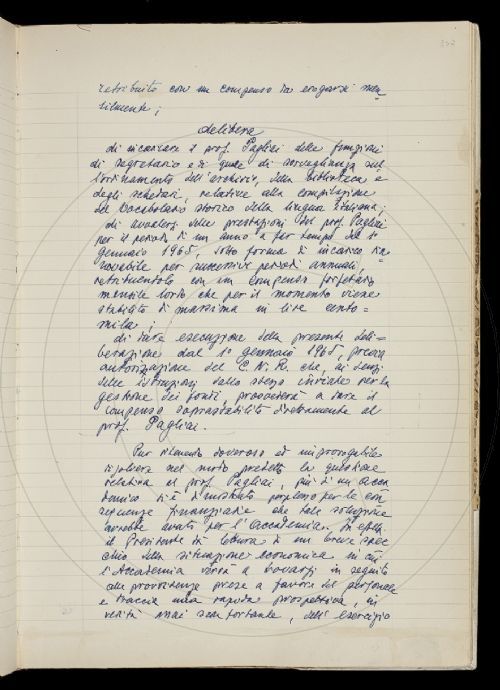 retribuito con un compenso da erogarsi men=
silmente;
delibera
di incaricare il prof. Pagliai delle funzioni
di segretario e di quelle di sorveglianza sul=
l'ordinamento dell'archivio, della Biblioteca e
degli schedari, relative alla compilazione
del Vocabolario storico della lingua italiana;
di avvalersi delle prestazioni del prof. Pagliai
per il periodo di un anno a far tempo dal 1°
gennaio 1965, sotto forma di incarico rin=
novabile per successivi periodi annuali,
retribuendolo con un compenso forfetario
mensile lordo che per il momento viene
stabilito di massima in lire cento=
mila;
di dare esecuzione della presente deli=
berazione dal 1° gennaio 1965, previa
autorizzazione del C.N.R. che, ai sensi
delle istruzioni dallo stesso inviate per la
gestione dei fondi, provvederà a dare il
compenso soprastabilito direttamente al
prof. Pagliai.
Pur ritenendo doveroso ed improrogabile
risolvere nel modo predetto la questione
relativa al prof. Pagliai, più d'un acca=
demico si è dimostrato perplesso per le con
seguenze finanziarie che tale soluzione
avrebbe avuto per l'Accademia. In effetti
il Presidente dà lettura di un breve spec
chio della situazione economica in cui
l'Accademia verrà a trovarsi in seguito
alle provvidenze prese a favore del personale
e traccia una rapida prospettiva, in
verità assai sconfortante, dell'esercizio